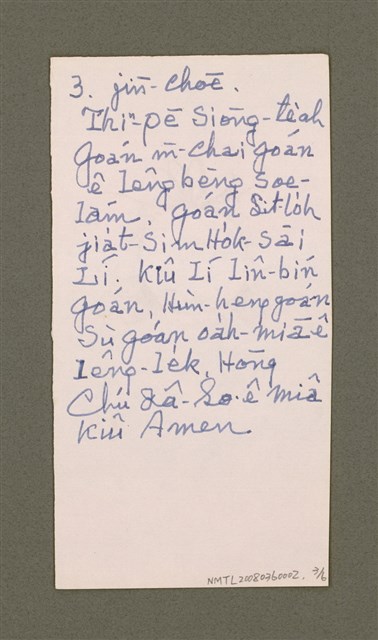 3. jīn-choē.
Thiⁿ-pē Siōng-tèah
Goán m̄-chai goán
ê lêng bēng soe-
lám, goán Sit-lo̍h
jia̍t-Sim Ho̍k-Sāi
Lí. Kiû Lí lîn-bín
goán, Hùn-heng goán
Sù goán oa̍h-miā ê
lêng-le̍k, Hōng
Chú Iâ-So. ê miâ
Kiû Amen
NMTL20080360002. 3/6